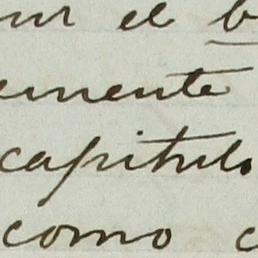 el
emente
capitulo
como c